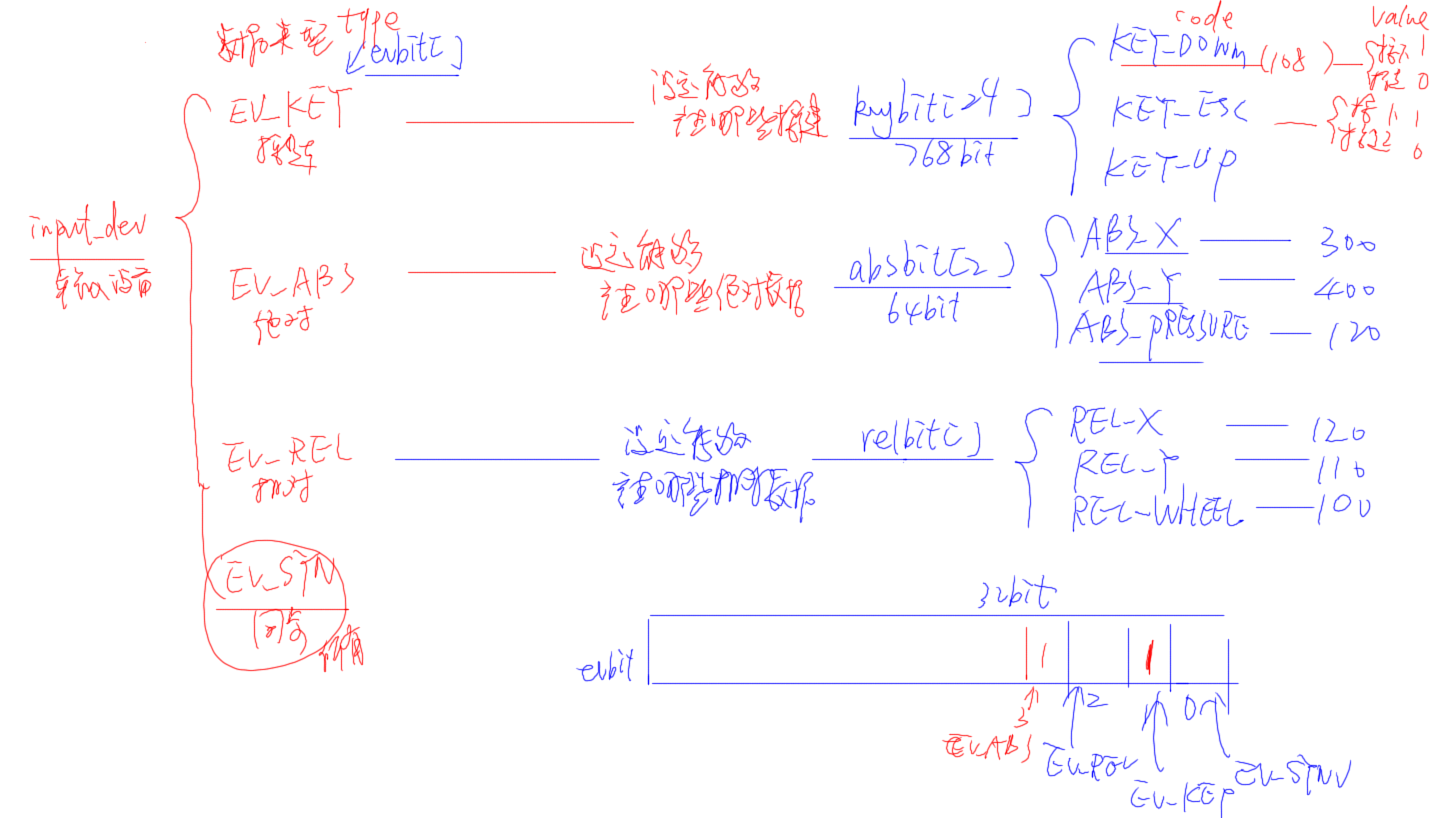 数据类型 type
evbit[]
code
value
input_dev
输入设备
EV_KEY
按键
设定能够
产生哪些按键
keybit[24]
768bit
KEY_DOWN (108)
按下 1
抬起 0
KEY_ESC
1
0
KEY_UP
EV_ABS
绝对
设定能够
产生哪些绝对数据
absbit[2]
64bit
ABS_X 300
ABS_Y 400
ABS_PRESSURE 120
EV_REL
相对
设定能够
产生哪些相对数据
relbit[]
REL_X 120
REL_Y 110
REL_WHEEL 100
EV_SYN
同步
32bit
evbit
1 1
3 2 0
EV_ABS
EV_REL
EV_KEY
EV_SYN